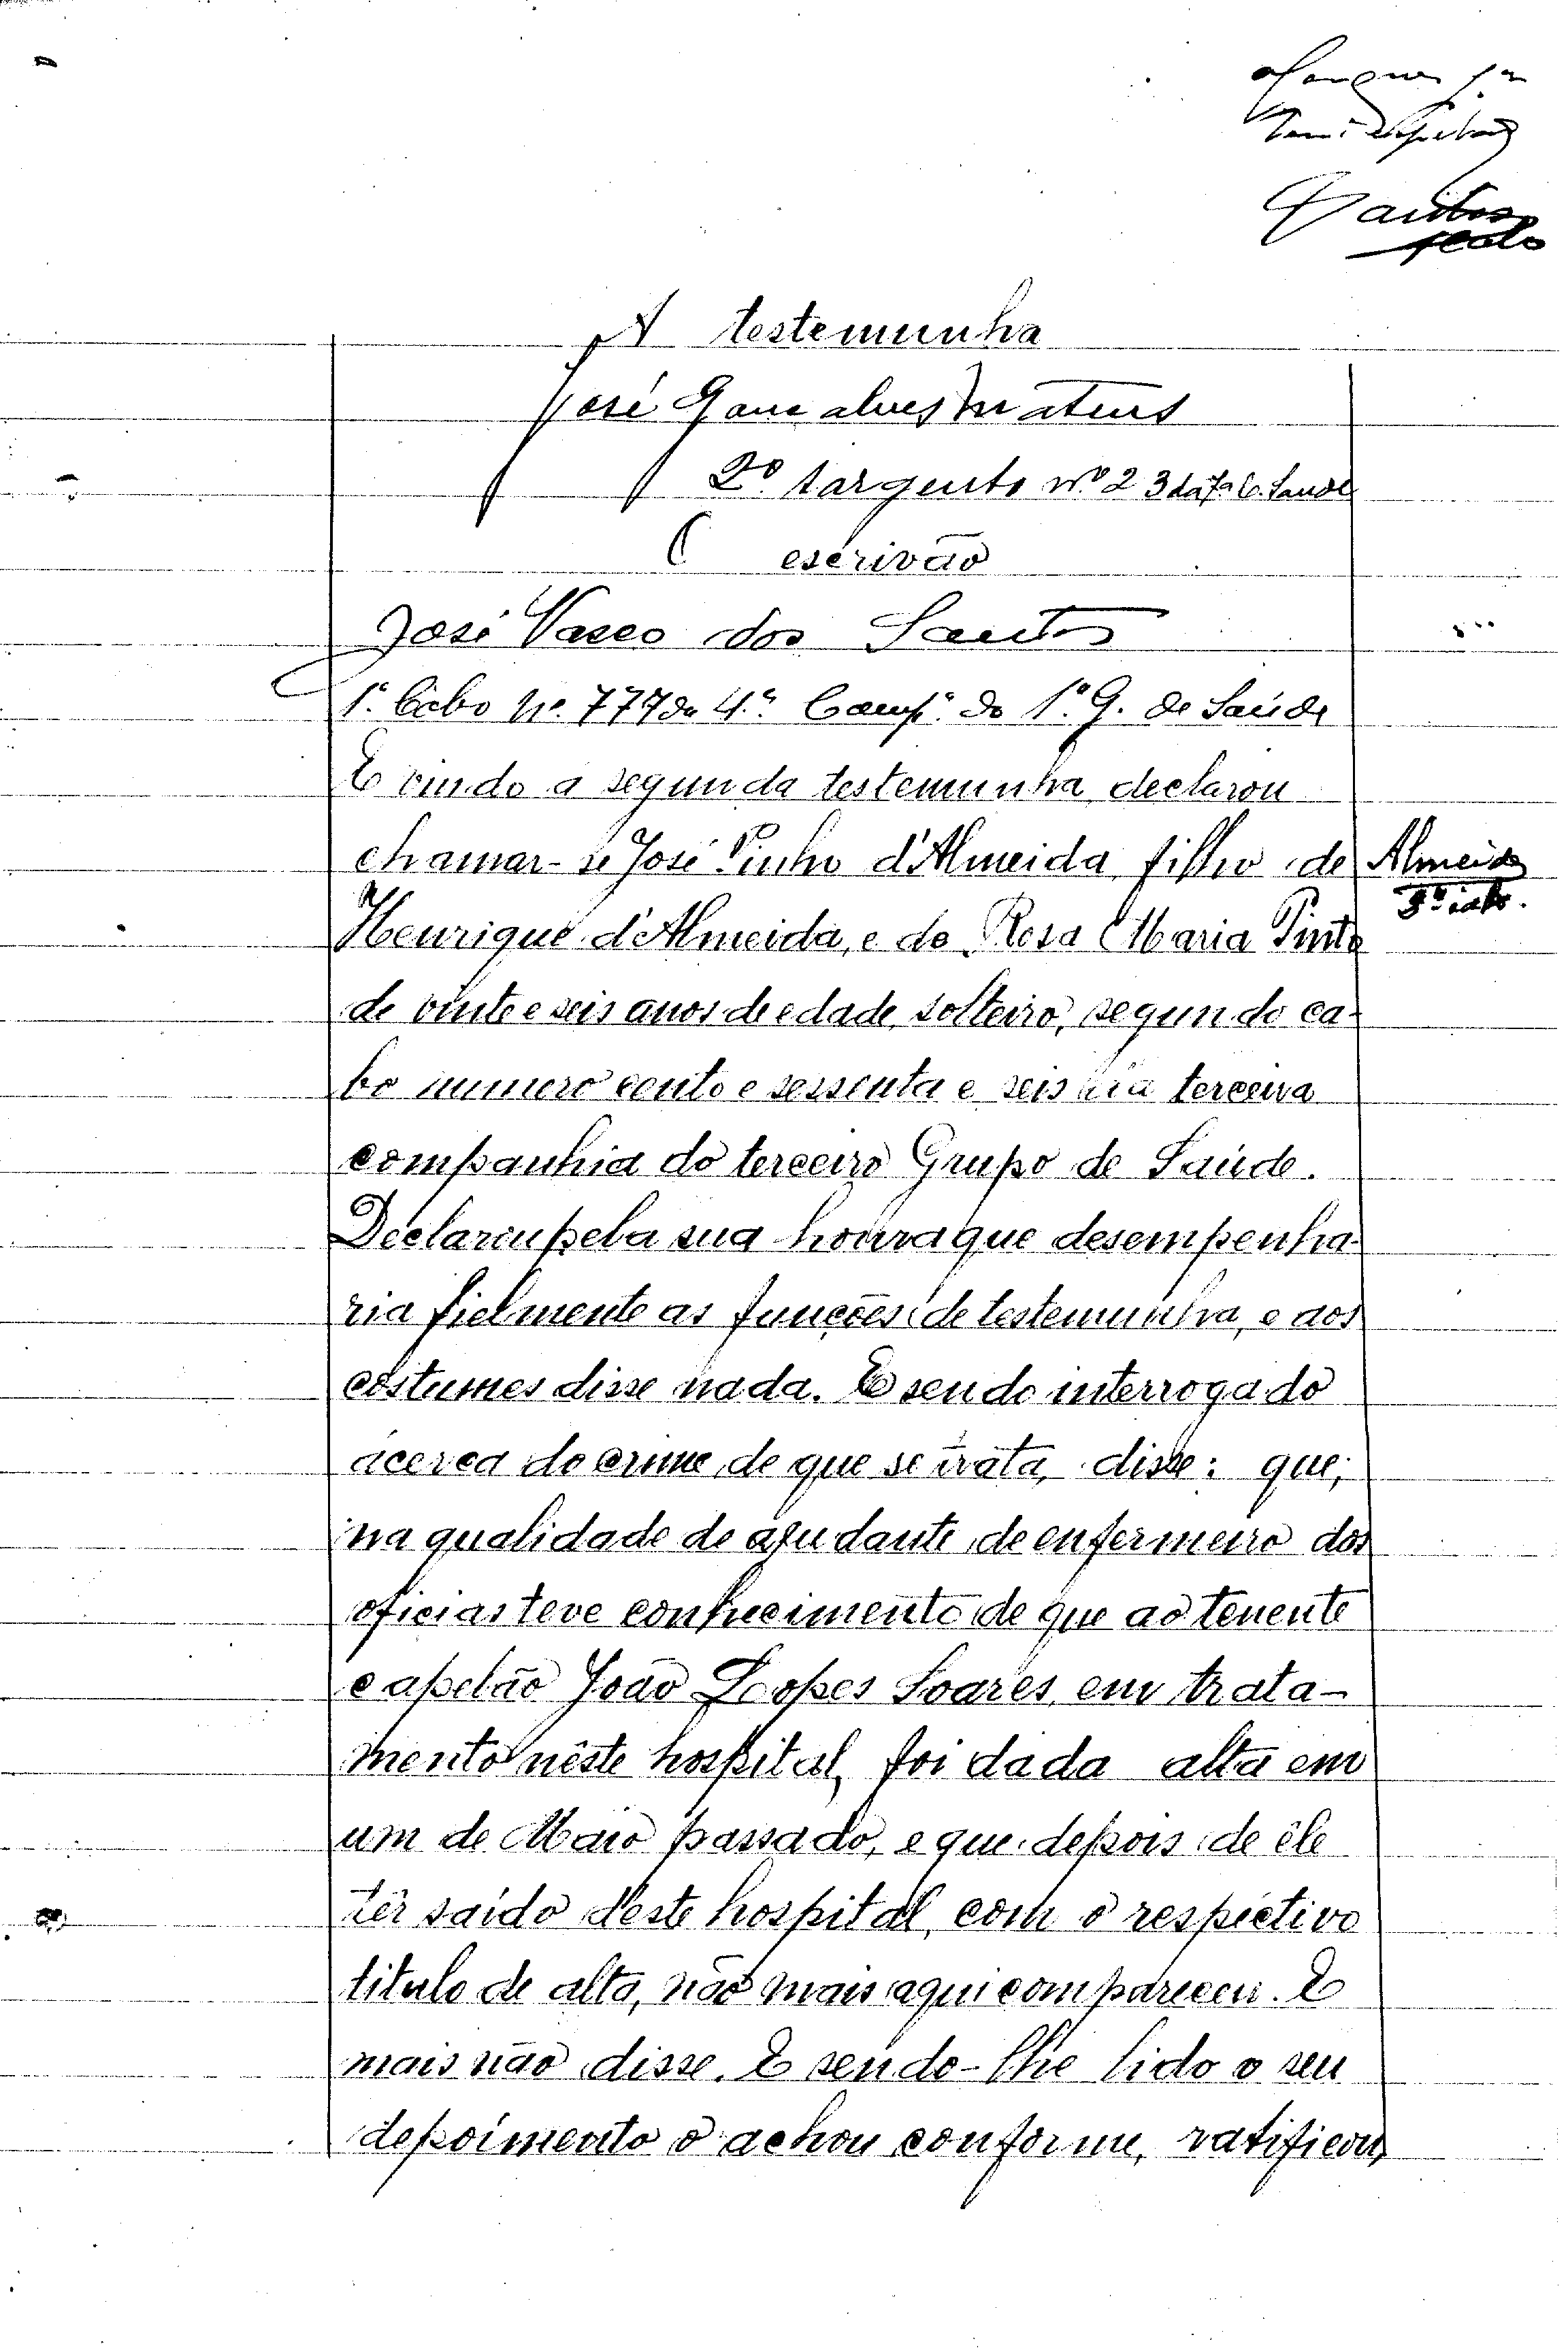 Santos
A testemunha
José Gonçalves Mateus
2º sargento nº 23 da 7ª C. Saude
O escrivão
José Vasco dos Santos
1º Cabo nº 777 da 4.ª Compª do 1º G. de Saúde
E vindo a segunda testemunha declarou
chamar-se José Pinho d'Almeida filho de
Almeida
Henrique d'Almeida, e de Rosa Maria Pinto
de vinte e seis anos de edade, solteiro, segundo ca-
bo numero cento e sessenta e seis da terceira
companhia do terceiro Grupo de Saúde.
Declarou pela sua honra que desempenha-
ria fielmente as funcções de testemunha, e aos
costumes disse nada. E sendo interrogado
ácerca do crime de que se trata, disse: que,
na qualidade de ajudante de enfermeiro dos
oficias teve conhecimento de que ao tenente
capelão João Lopes Soares, em trata-
mento nêste hospital, foi dada alta em
um de Maio passado, e que depois de êle
têr saído deste hospital, com o respectivo
titulo de alta, não mais aqui compareceu. E
mais não disse. E sendo-lhe lido o seu
depoimento o achou conforme, ratificou,